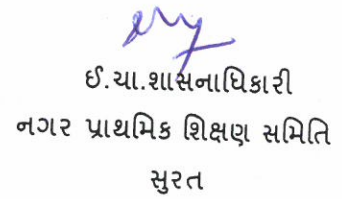 ઈ.ચા.શાસનાધિકારી
નગર પ્રાથમિક શિક્ષણ સમિતિ
સુરત